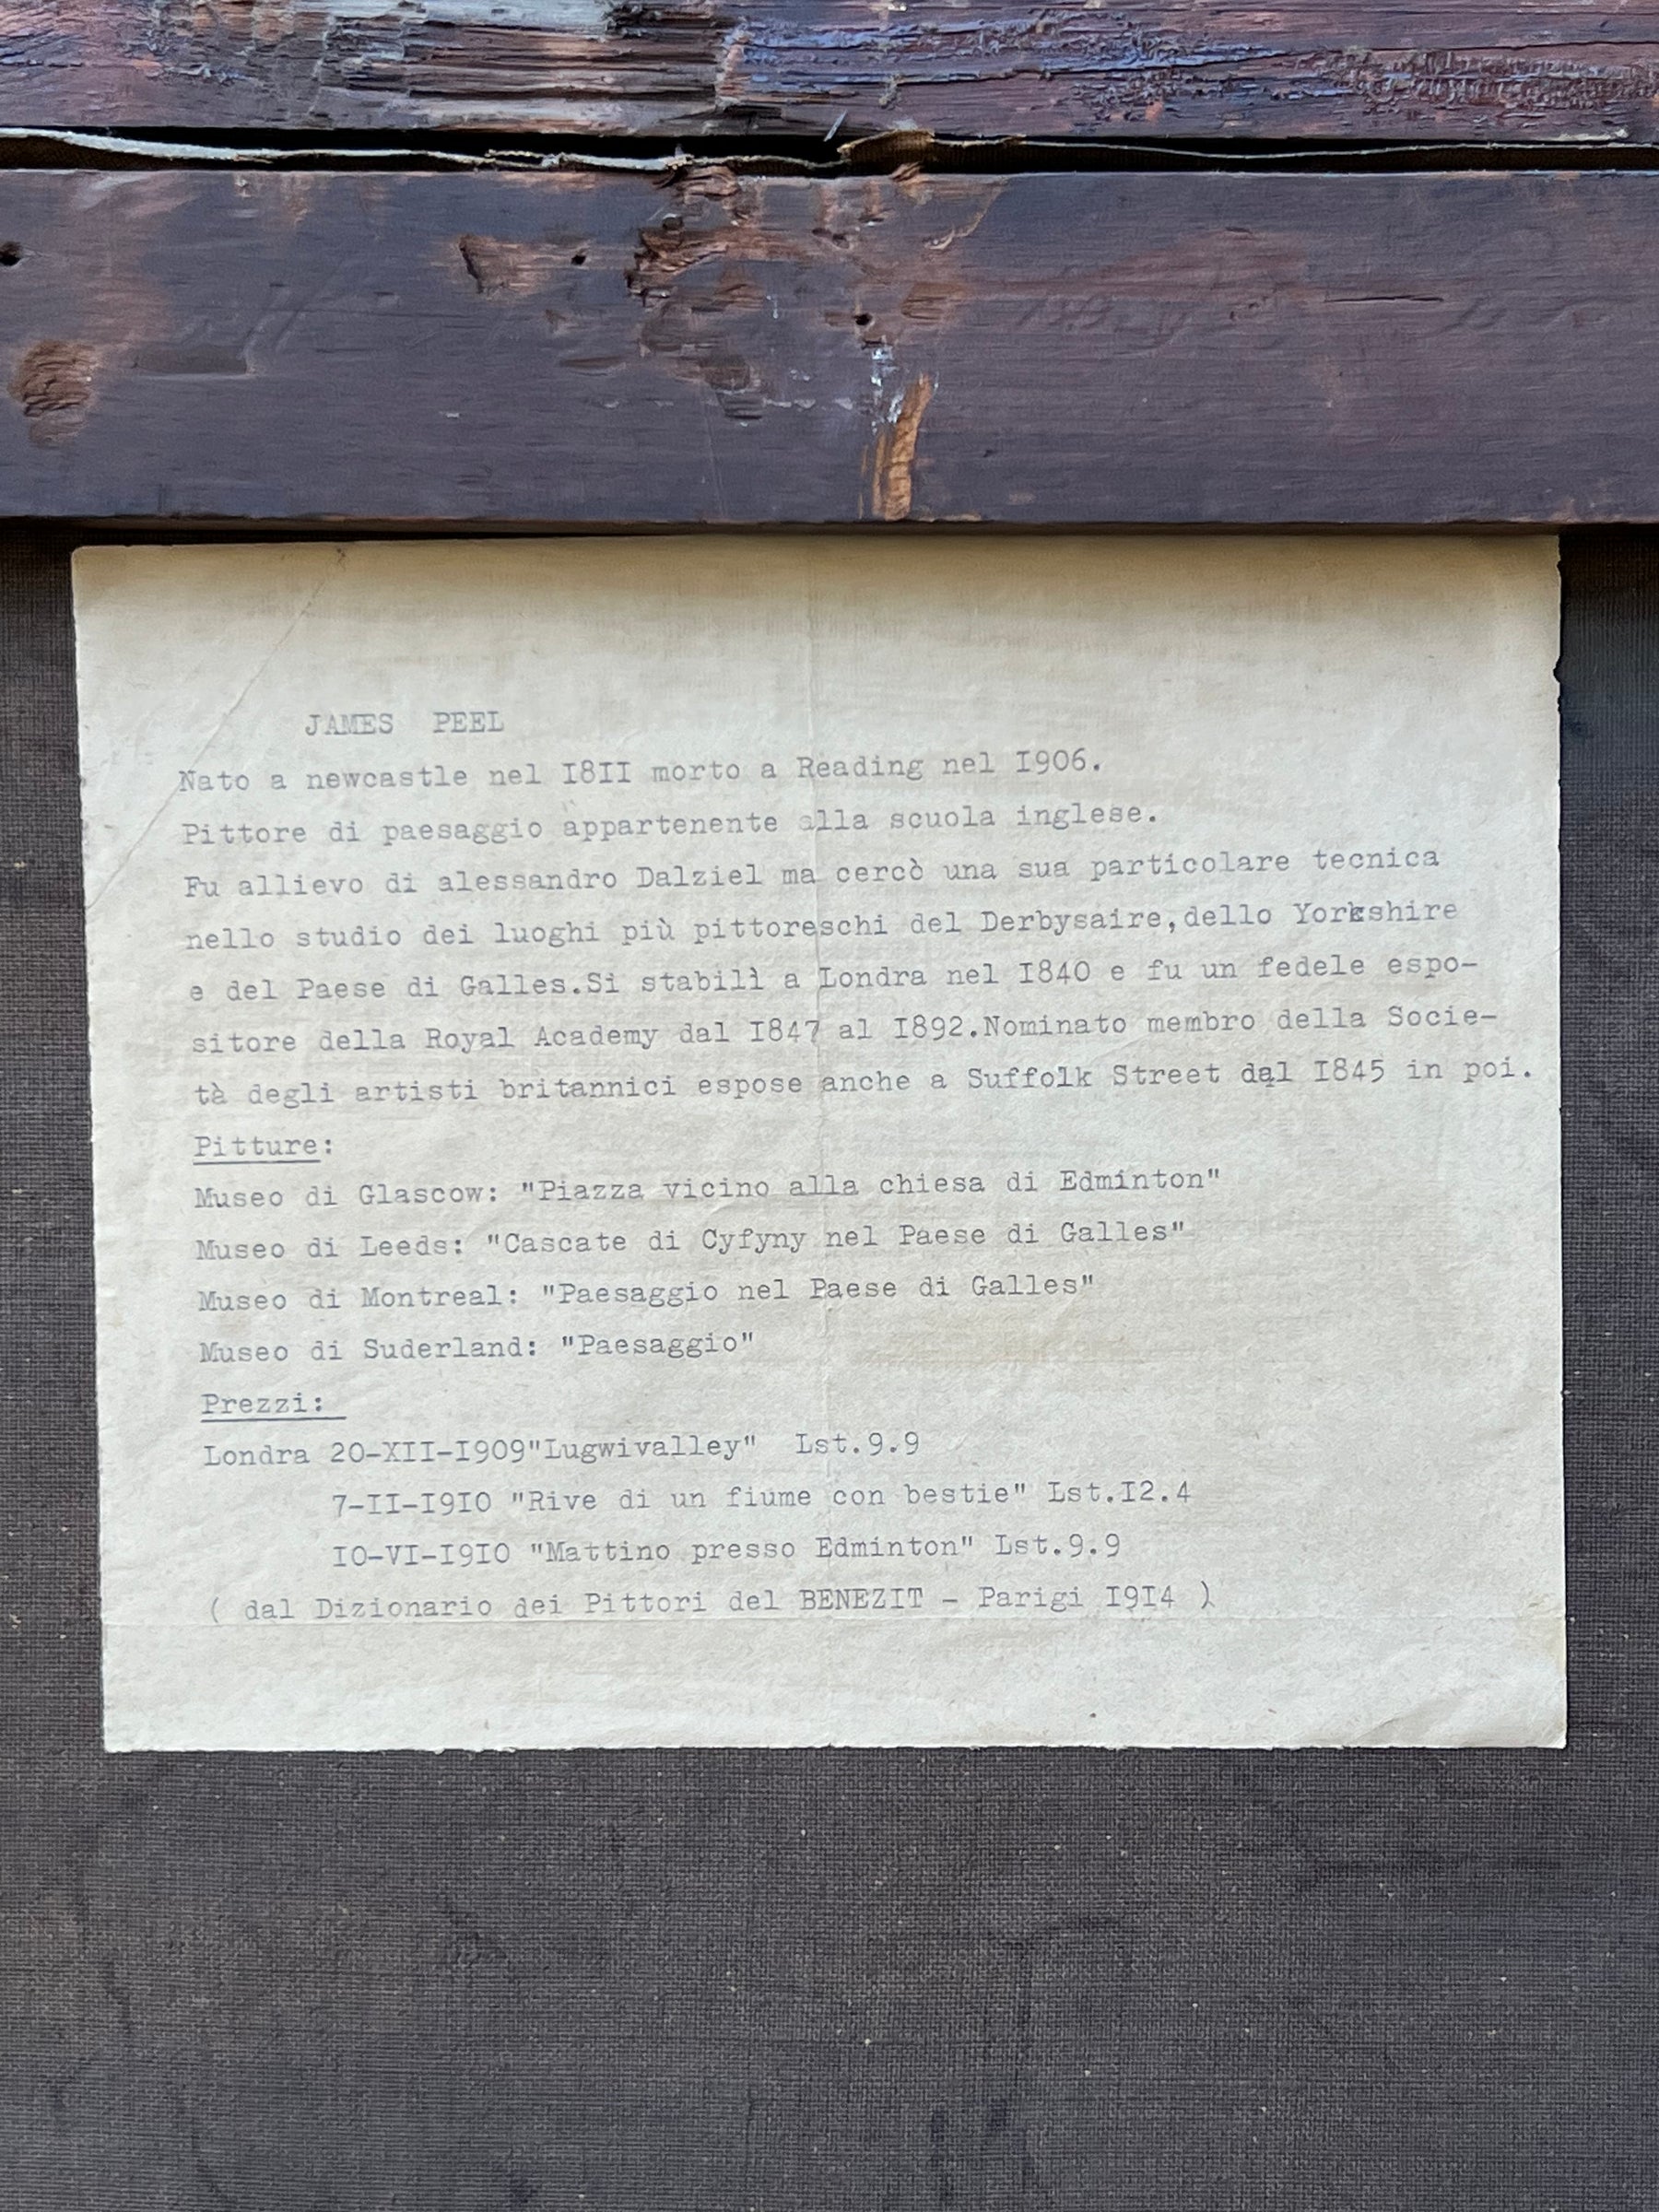 JAMES PEEL
Nato a newcastle nel I8II morto a Reading nel I906.
Pittore di paesaggio appartenente alla scuola inglese.
Fu allievo di alessandro Dalziel ma cercò una sua particolare tecnica
nello studio dei luoghi più pittoreschi del Derbysaire,dello Yorkshire
e del Paese di Galles.Si stabilì a Londra nel I840 e fu un fedele espo-
sitore della Royal Academy dal I847 al I892.Nominato membro della Socie-
tà degli artisti britannici espose anche a Suffolk Street dal I845 in poi.
Pitture:
Museo di Glascow: "Piazza vicino alla chiesa di Edminton"
Museo di Leeds: "Cascate di Cyfyny nel Paese di Galles"
Museo di Montreal: "Paesaggio nel Paese di Galles"
Museo di Suderland: "Paesaggio"
Prezzi:
Londra 20-XII-I909"Lugwivalley" Lst.9.9
7-II-I9I0 "Rive di un fiume con bestie" Lst.I2.4
I0-VI-I9I0 "Mattino presso Edminton" Lst.9.9
( dal Dizionario dei Pittori del BENEZIT - Parigi I9I4 )